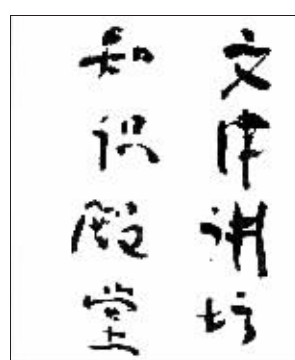 文津讲坊
知识殿堂